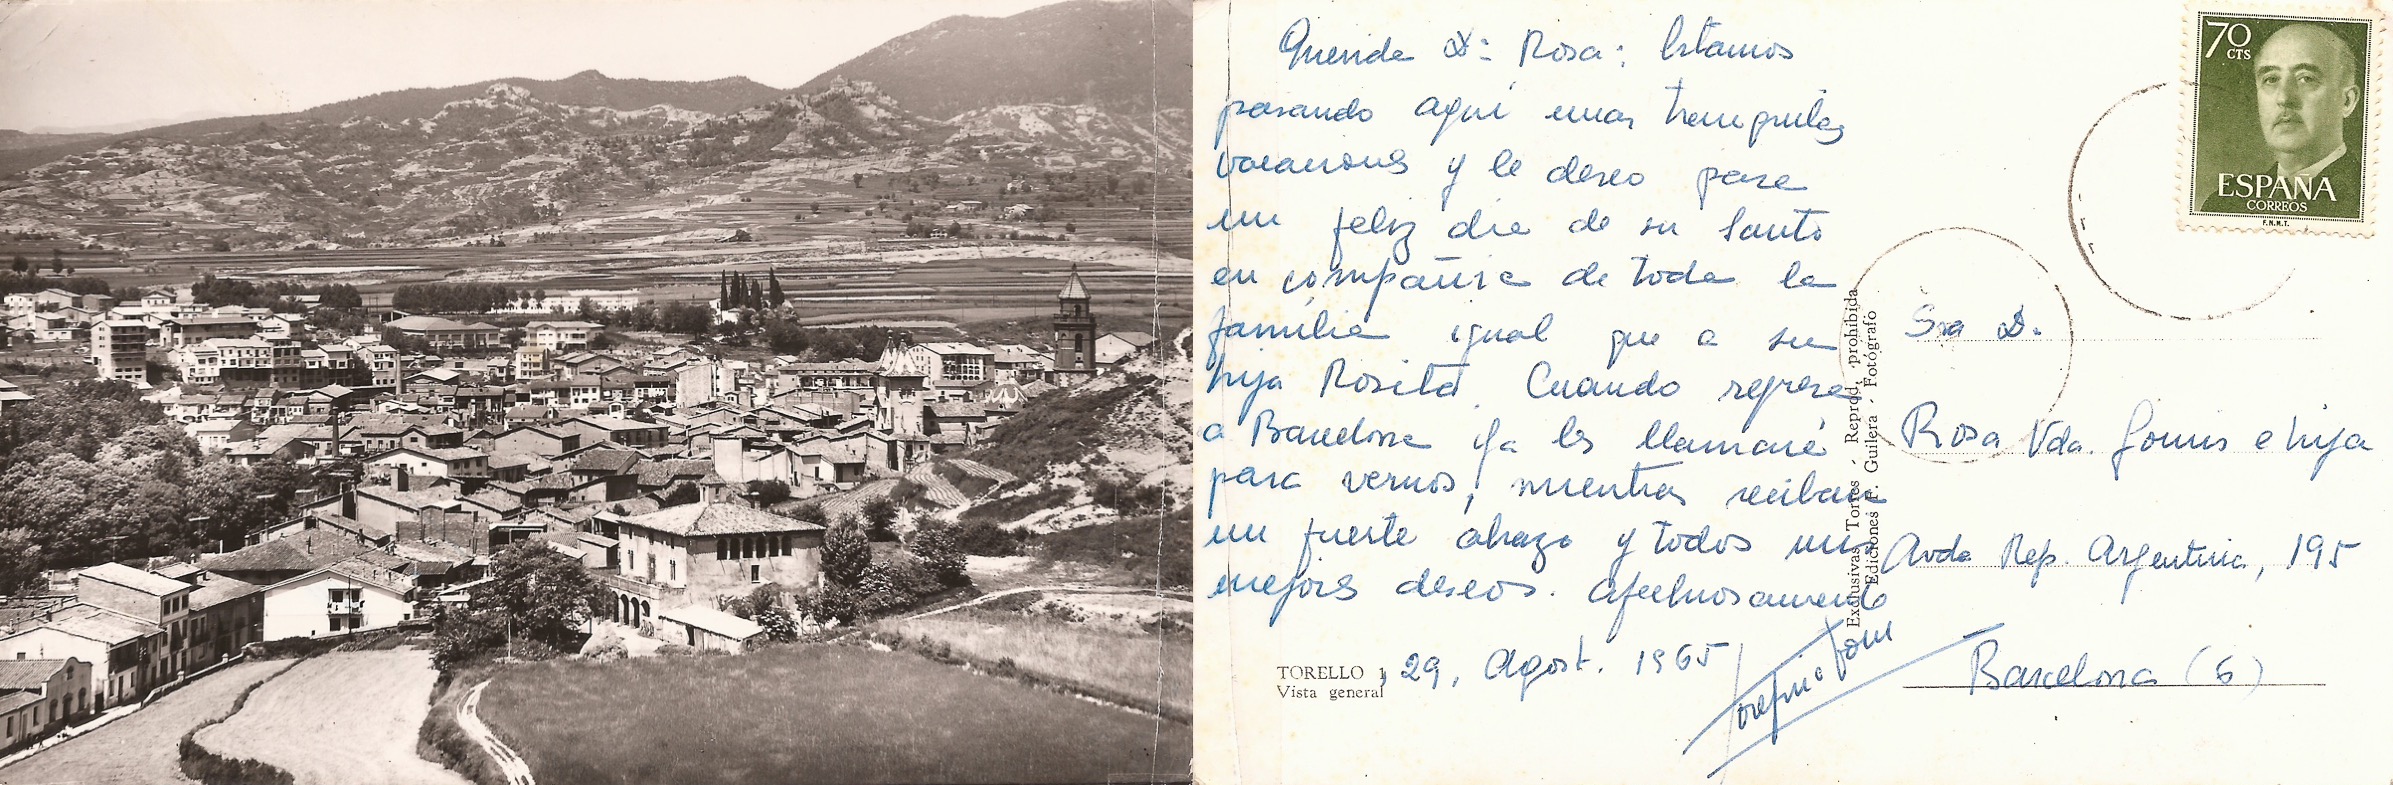 Querida Dª Rosa: Estamos
pasando aquí unas tranquilas
vacaciones y le deseo pase
un feliz día de su Santo
en compañía de toda la
familia igual que a su
hija Rosita. Cuando regrese
a Barcelona ya les llamaré
para vernos, mientras reciban
un fuerte abrazo y todos mis
mejores deseos. Afectuosamente
TORELLO 1, 29, Agost. 1965
Vista general
Exclusivas Torres - Reprod. prohibida
Ediciones F. Guilera - Fotógrafo
70
CTS
ESPAÑA
CORREOS
F.N.M.T.
Sra D.
Rosa Vda. Gomis e hija
Avda Rep. Argentina, 195
Barcelona (6)